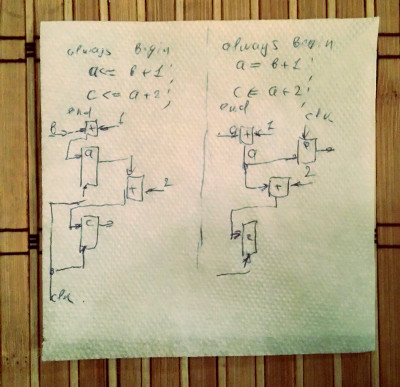 always begin
a <= b + 1;
c <= a + 2;
end
b
+
1
a
+
2
c
clk
always begin
a = b + 1;
c = a + 2;
end
+
1
clk
a
+
2